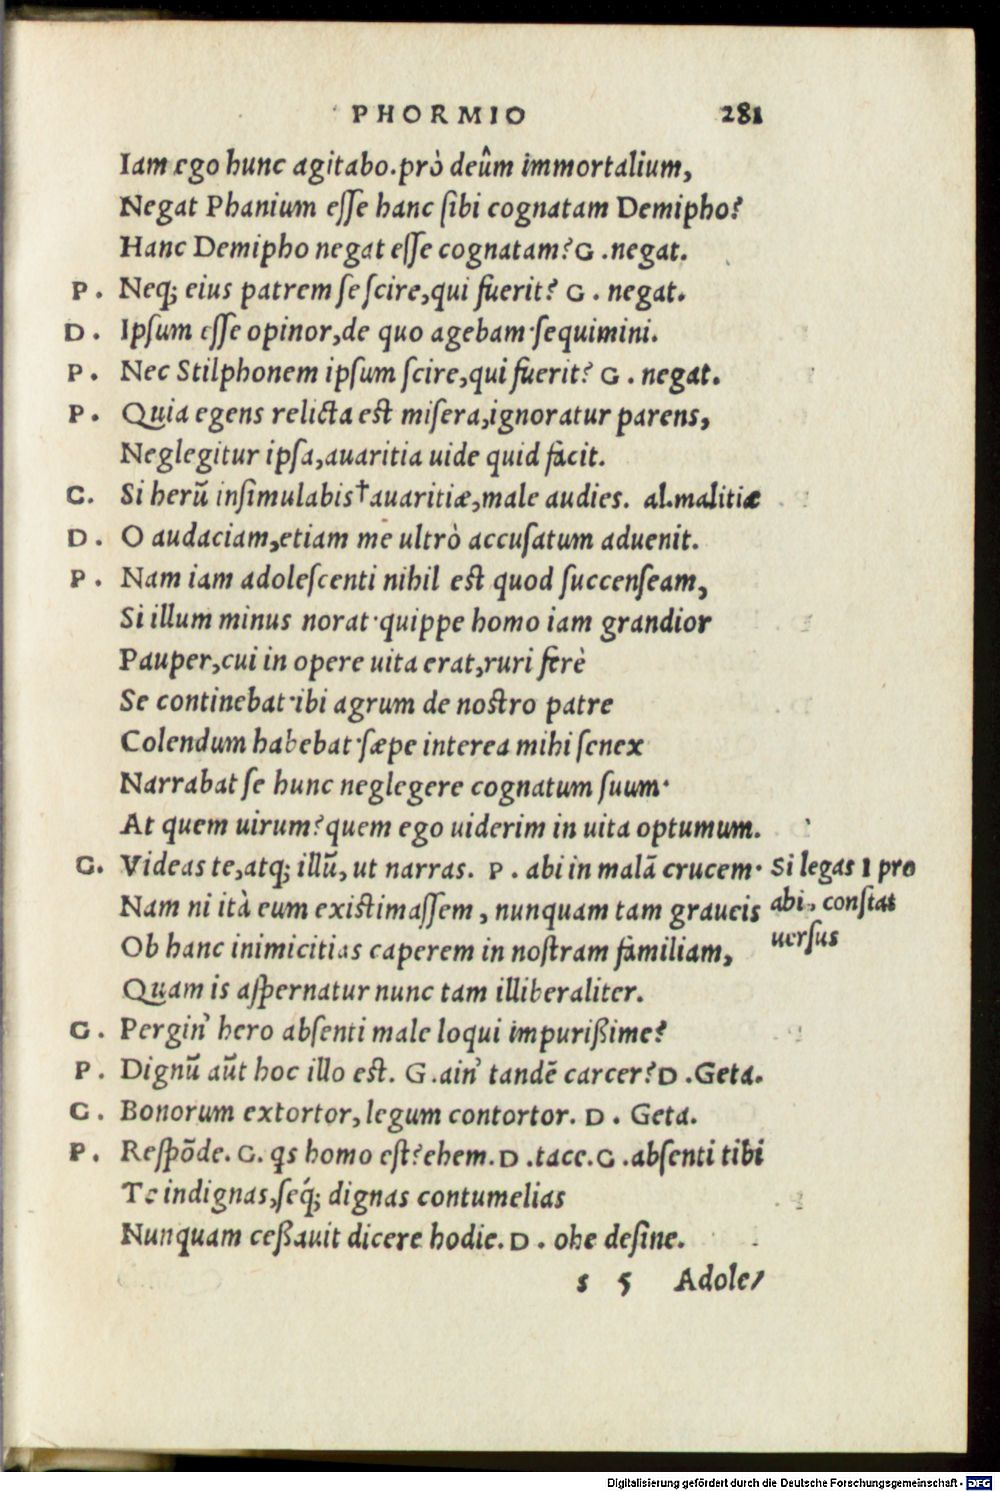 PHORMIO 281
Iam ego hunc agitabo.prò deûm immortalium,
Negat Phanium eſſe hanc ſibi cognatam Demipho?
Hanc Demipho negat eſſe cognatam? G .negat.
P . Neq; eius patrem ſe ſcire,qui fuerit? G . negat.
D . Ipſum eſſe opinor,de quo agebam·ſequimini.
P . Nec Stilphonem ipſum ſcire,qui fuerit? G . negat.
P . Quia egens relicta est miſera,ignoratur parens,
Neglegitur ipſa,auaritia uide quid facit.
G. Si herū inſimulabis†auaritiæ,male audies. al.malitiæ
D . O audaciam,etiam me ultrò accuſatum aduenit.
P . Nam iam adoleſcenti nihil est quod ſuccenſeam,
Si illum minus norat·quippe homo iam grandior
Pauper,cui in opere uita erat,ruri ferè
Se continebat·ibi agrum de noſtro patre
Colendum habebat·ſæpe interea mihi ſenex
Narrabat ſe hunc neglegere cognatum ſuum·
At quem uirum?quem ego uiderim in uita optumum.
G. Videas te,atq; illū, ut narras. P . abi in malā crucem· Si legas I pro
Nam ni ità eum existimaſſem , nunquam tam graueis abi, conſtat
Ob hanc inimicitias caperem in noſtram familiam, uerſus
Quam is aſpernatur nunc tam illiberaliter.
G . Pergin' hero abſenti male loqui impurißime?
P . Dignū aūt hoc illo est. G .ain' tandē carcer? D .Geta.
G . Bonorum extortor,legum contortor. D . Geta.
P . Reſpōde. G. qs homo est?ehem. D .tace. G .abſenti tibi
Te indignas,ſeq́; dignas contumelias
Nunquam ceßauit dicere hodie. D . ohe deſine.
s 5 Adole/
Digitalisierung gefördert durch die Deutsche Forschungsgemeinschaft - DFG